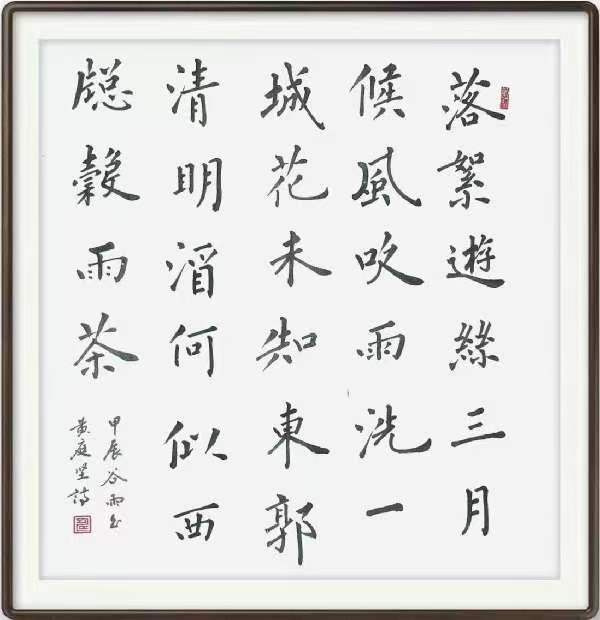 落絮遊絲三月
候風吹雨洗一
城花未知東郭
清明酒何似西
牕穀雨茶
甲辰谷雨书
黄庭坚詩